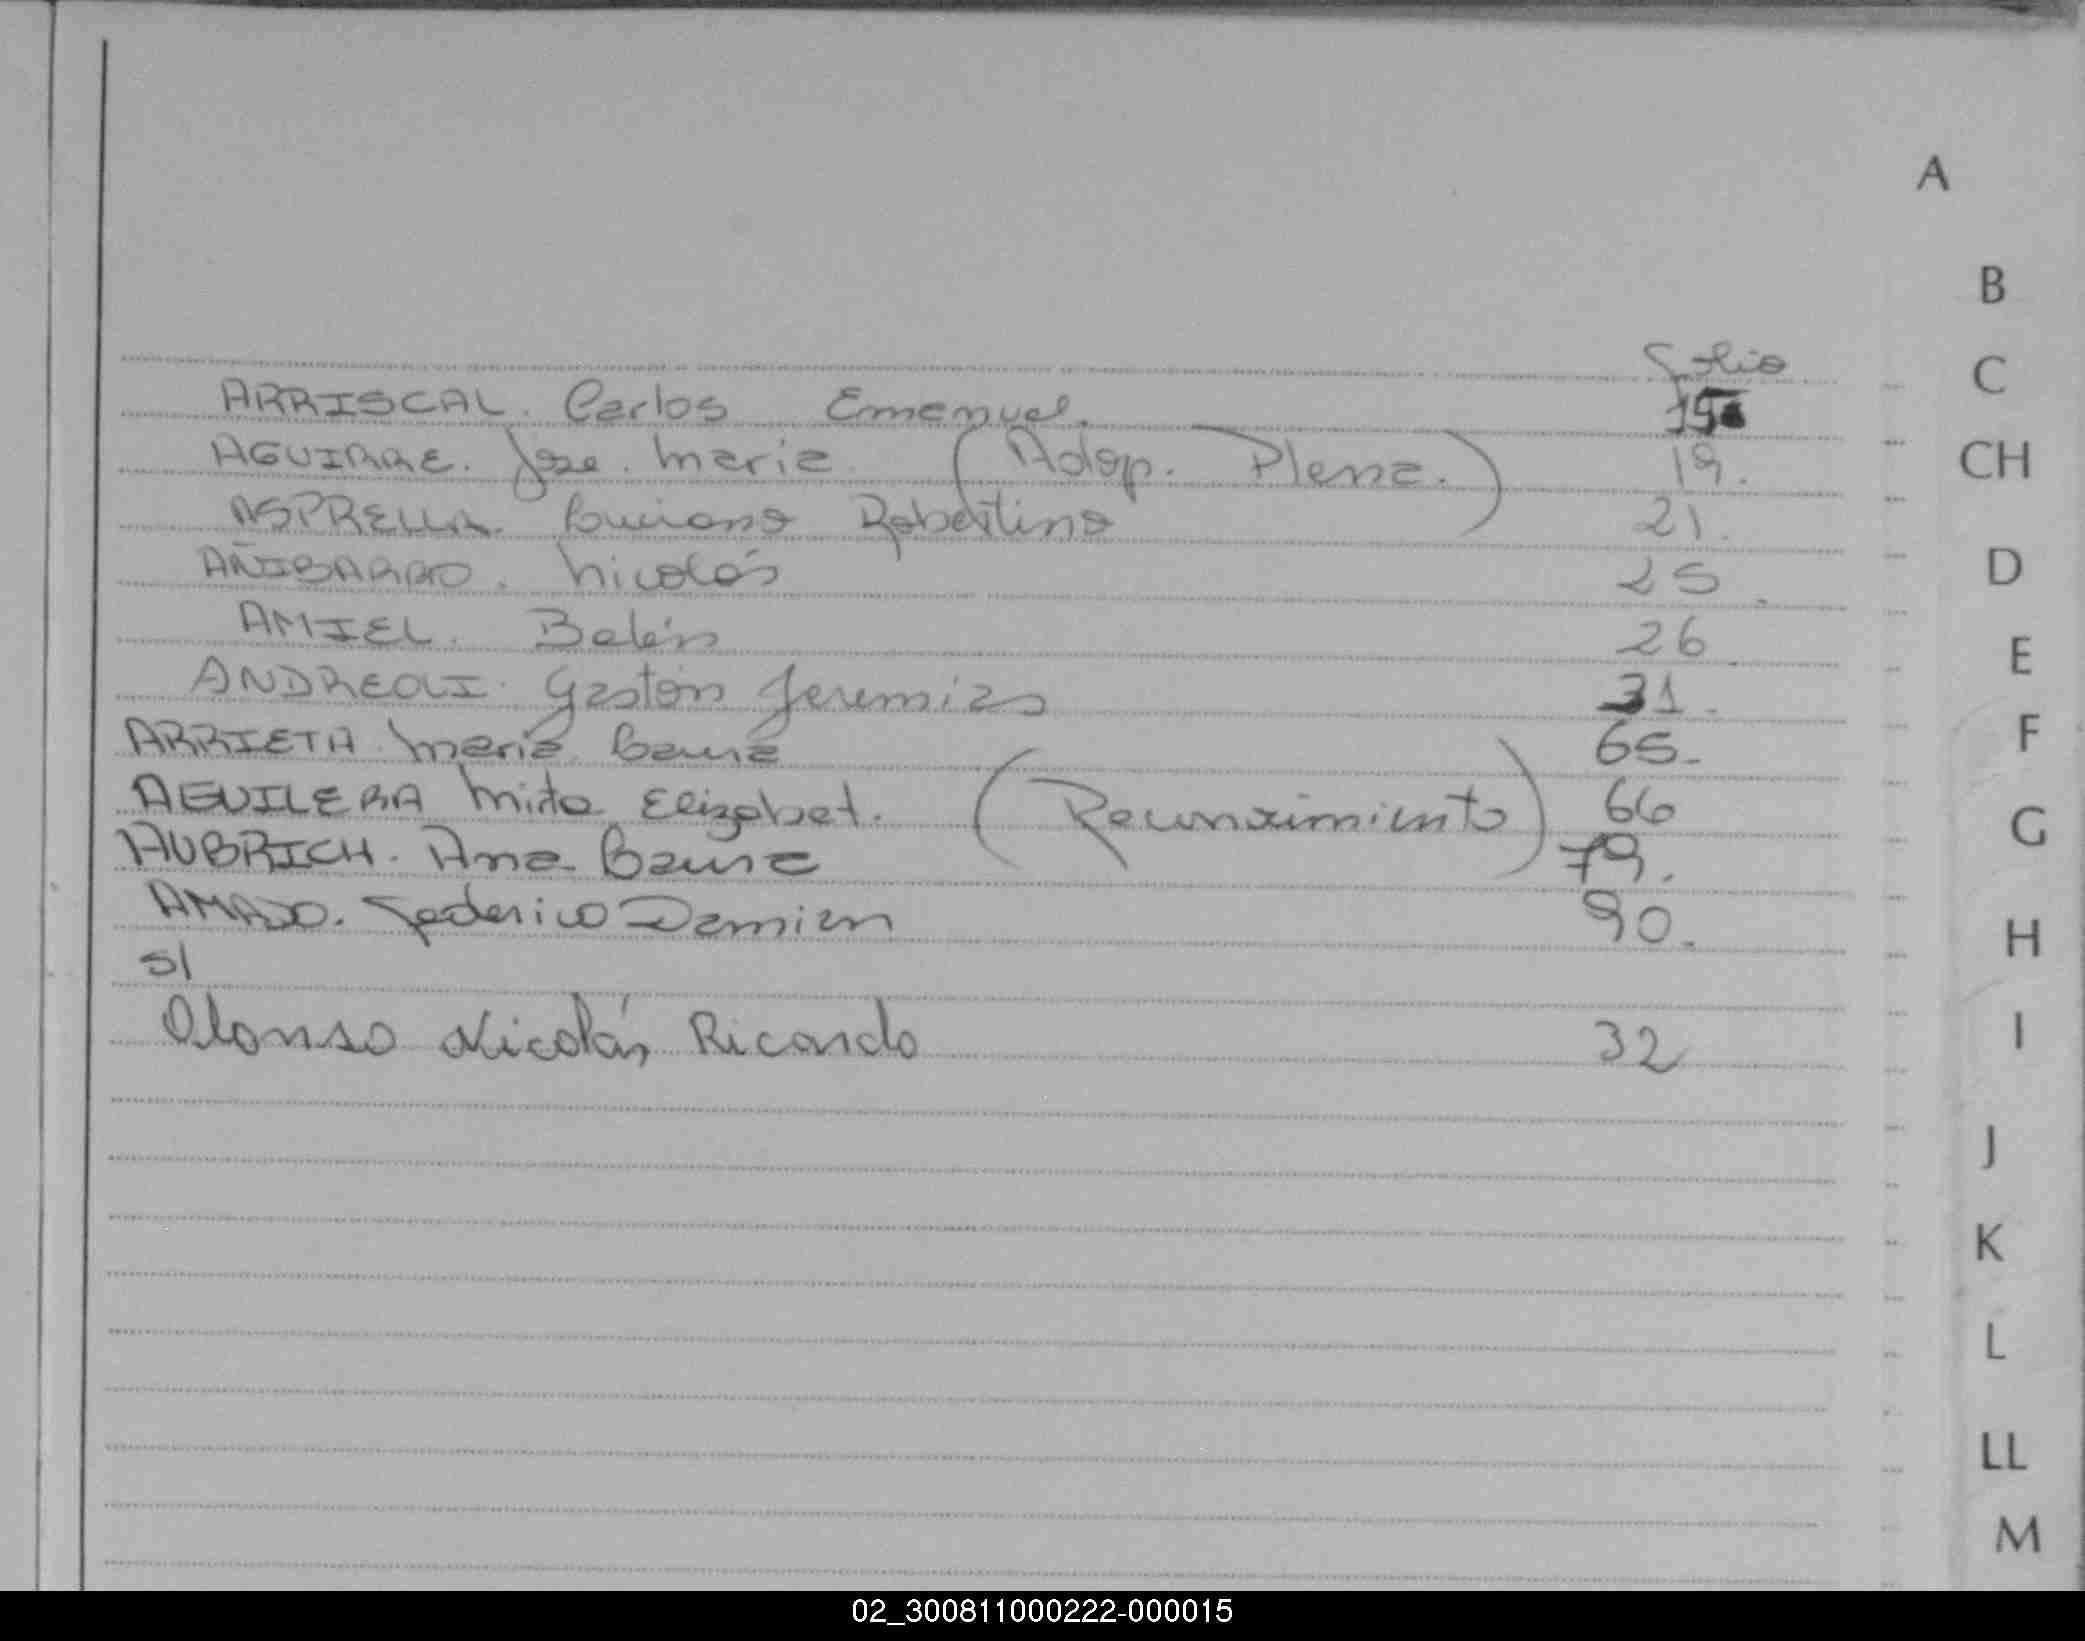 A
B
Folio
C
ARRISCAL. Carlos Emanuel. 15
AGUIRRE. Jose. Maria. (Adop. Plena.) 19.
CH
ASPRELLA. Luciano Robertino 21.
AÑIBARRO. Nicolás 25.
D
AMIEL. Belén 26
E
ANDREOLI. Gastón Jeremias 31.
F
ARRIETA. Maria Laura 65.
AGUILERA Mirta Elizabet. (Reconocimiento) 66
G
AUBRICH. Ana Laura 79.
AMADO. Federico Damian 90.
H
S/
Alonso Nicolás Ricardo 32
I
J
K
L
LL
M
02_300811000222-000015